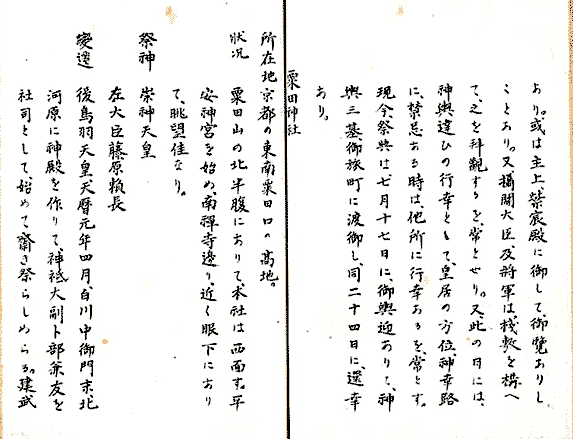 あり。或は主上、紫宸殿に御して、御覽ありし
ことあり。又攝關大臣及將軍は、棧敷を構へ
て、之を拜觀するを、常とせり。又、此の日には、
神輿違ひの行幸とて、皇居の方位、神幸路
に、禁忌ある時は、他所に行幸あるを常とす。
現今、祭典は七月十七日に、御輿迎ありて、神
輿三基御旅町に渡御し、同二十四日に、還幸
あり。
粟田神社
所在地 京都の東南粟田口の高地。
狀况 粟田山の北半腹にありて、本社は西面す。平
安神宮を始め、南禪寺邊り、近く眼下にあり
て、眺望佳なり。
祭神 崇神天皇
左大臣藤原賴長
變遷 後鳥羽天皇天曆元年四月、白川中御門末北
河原に神殿を作りて、神祇大副卜部兼友を
社司として、始めて齋き祭らしめらる。建武